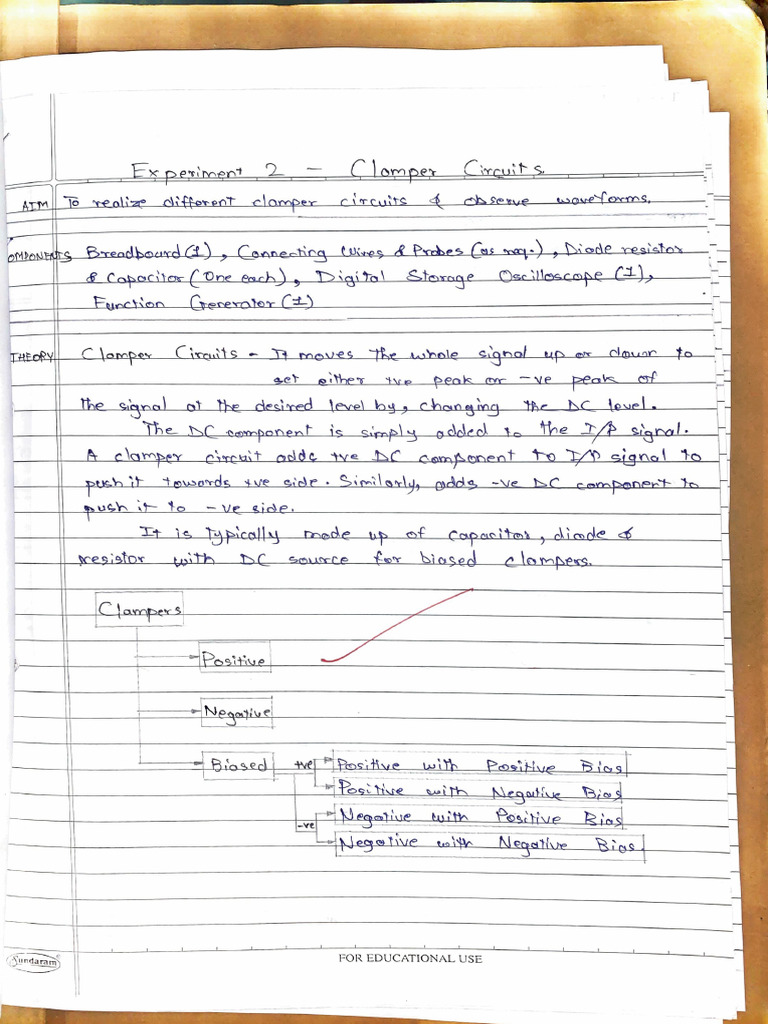 Experiment 2 - Clamper Circuits
AIM To realize different clamper circuits & observe waveforms.
OMPONENTS Breadboard (1), Connecting Wires & Probes (as req.), Diode resistor
& Capacitor (One each), Digital Storage Oscilloscope (1),
Function Generator (1)
THEORY Clamper Circuits - It moves the whole signal up or down to
set either +ve peak or -ve peak of
the signal at the desired level by, changing the DC level.
The DC component is simply added to the I/P signal.
A clamper circuit adds +ve DC component to I/P signal to
push it towards +ve side. Similarly, adds -ve DC component to
push it to -ve side.
It is typically made up of capacitor, diode &
resistor with DC source for biased clampers.
Clampers
Positive
Negative
Biased +ve Positive with Positive Bias
Positive with Negative Bias
-ve Negative with Positive Bias
Negative with Negative Bias.
Sundaram FOR EDUCATIONAL USE